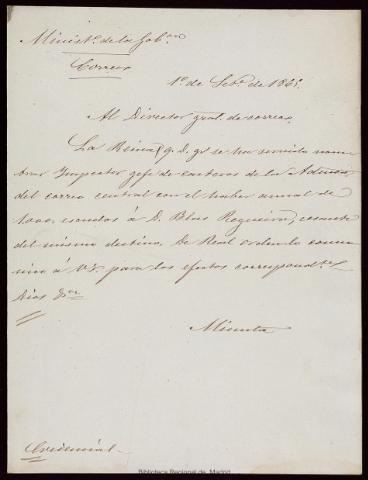 Minist.º de la Gob.on
Correos
1º de Set.e de 1865.
Al Director gral. de correos.
La Reina (q. D. g.) se ha servido nom-
brar Ynspector gefe de carteros de la Admon.
del correo central con el haber anual de
1000 escudos á D. Blas Regueira, cesante
del mismo destino. De Real orden lo comu-
nico á V.S. para los efectos correspond.tes
Dios &.ª
Minuta
Credencial
Biblioteca Regional de Madrid